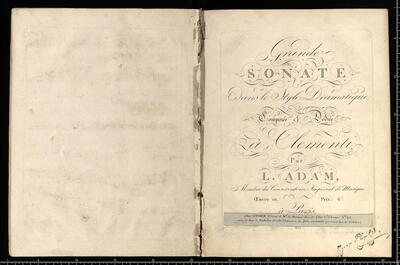 Grande
SONATE
dans le Style Dramatique
Composée & Dédiée
à Clementi
Par
L. ADAM,
Membre du Conservatoire Impérial de Musique
Œuvre 10. Prix: 6.ᶠ
à Paris